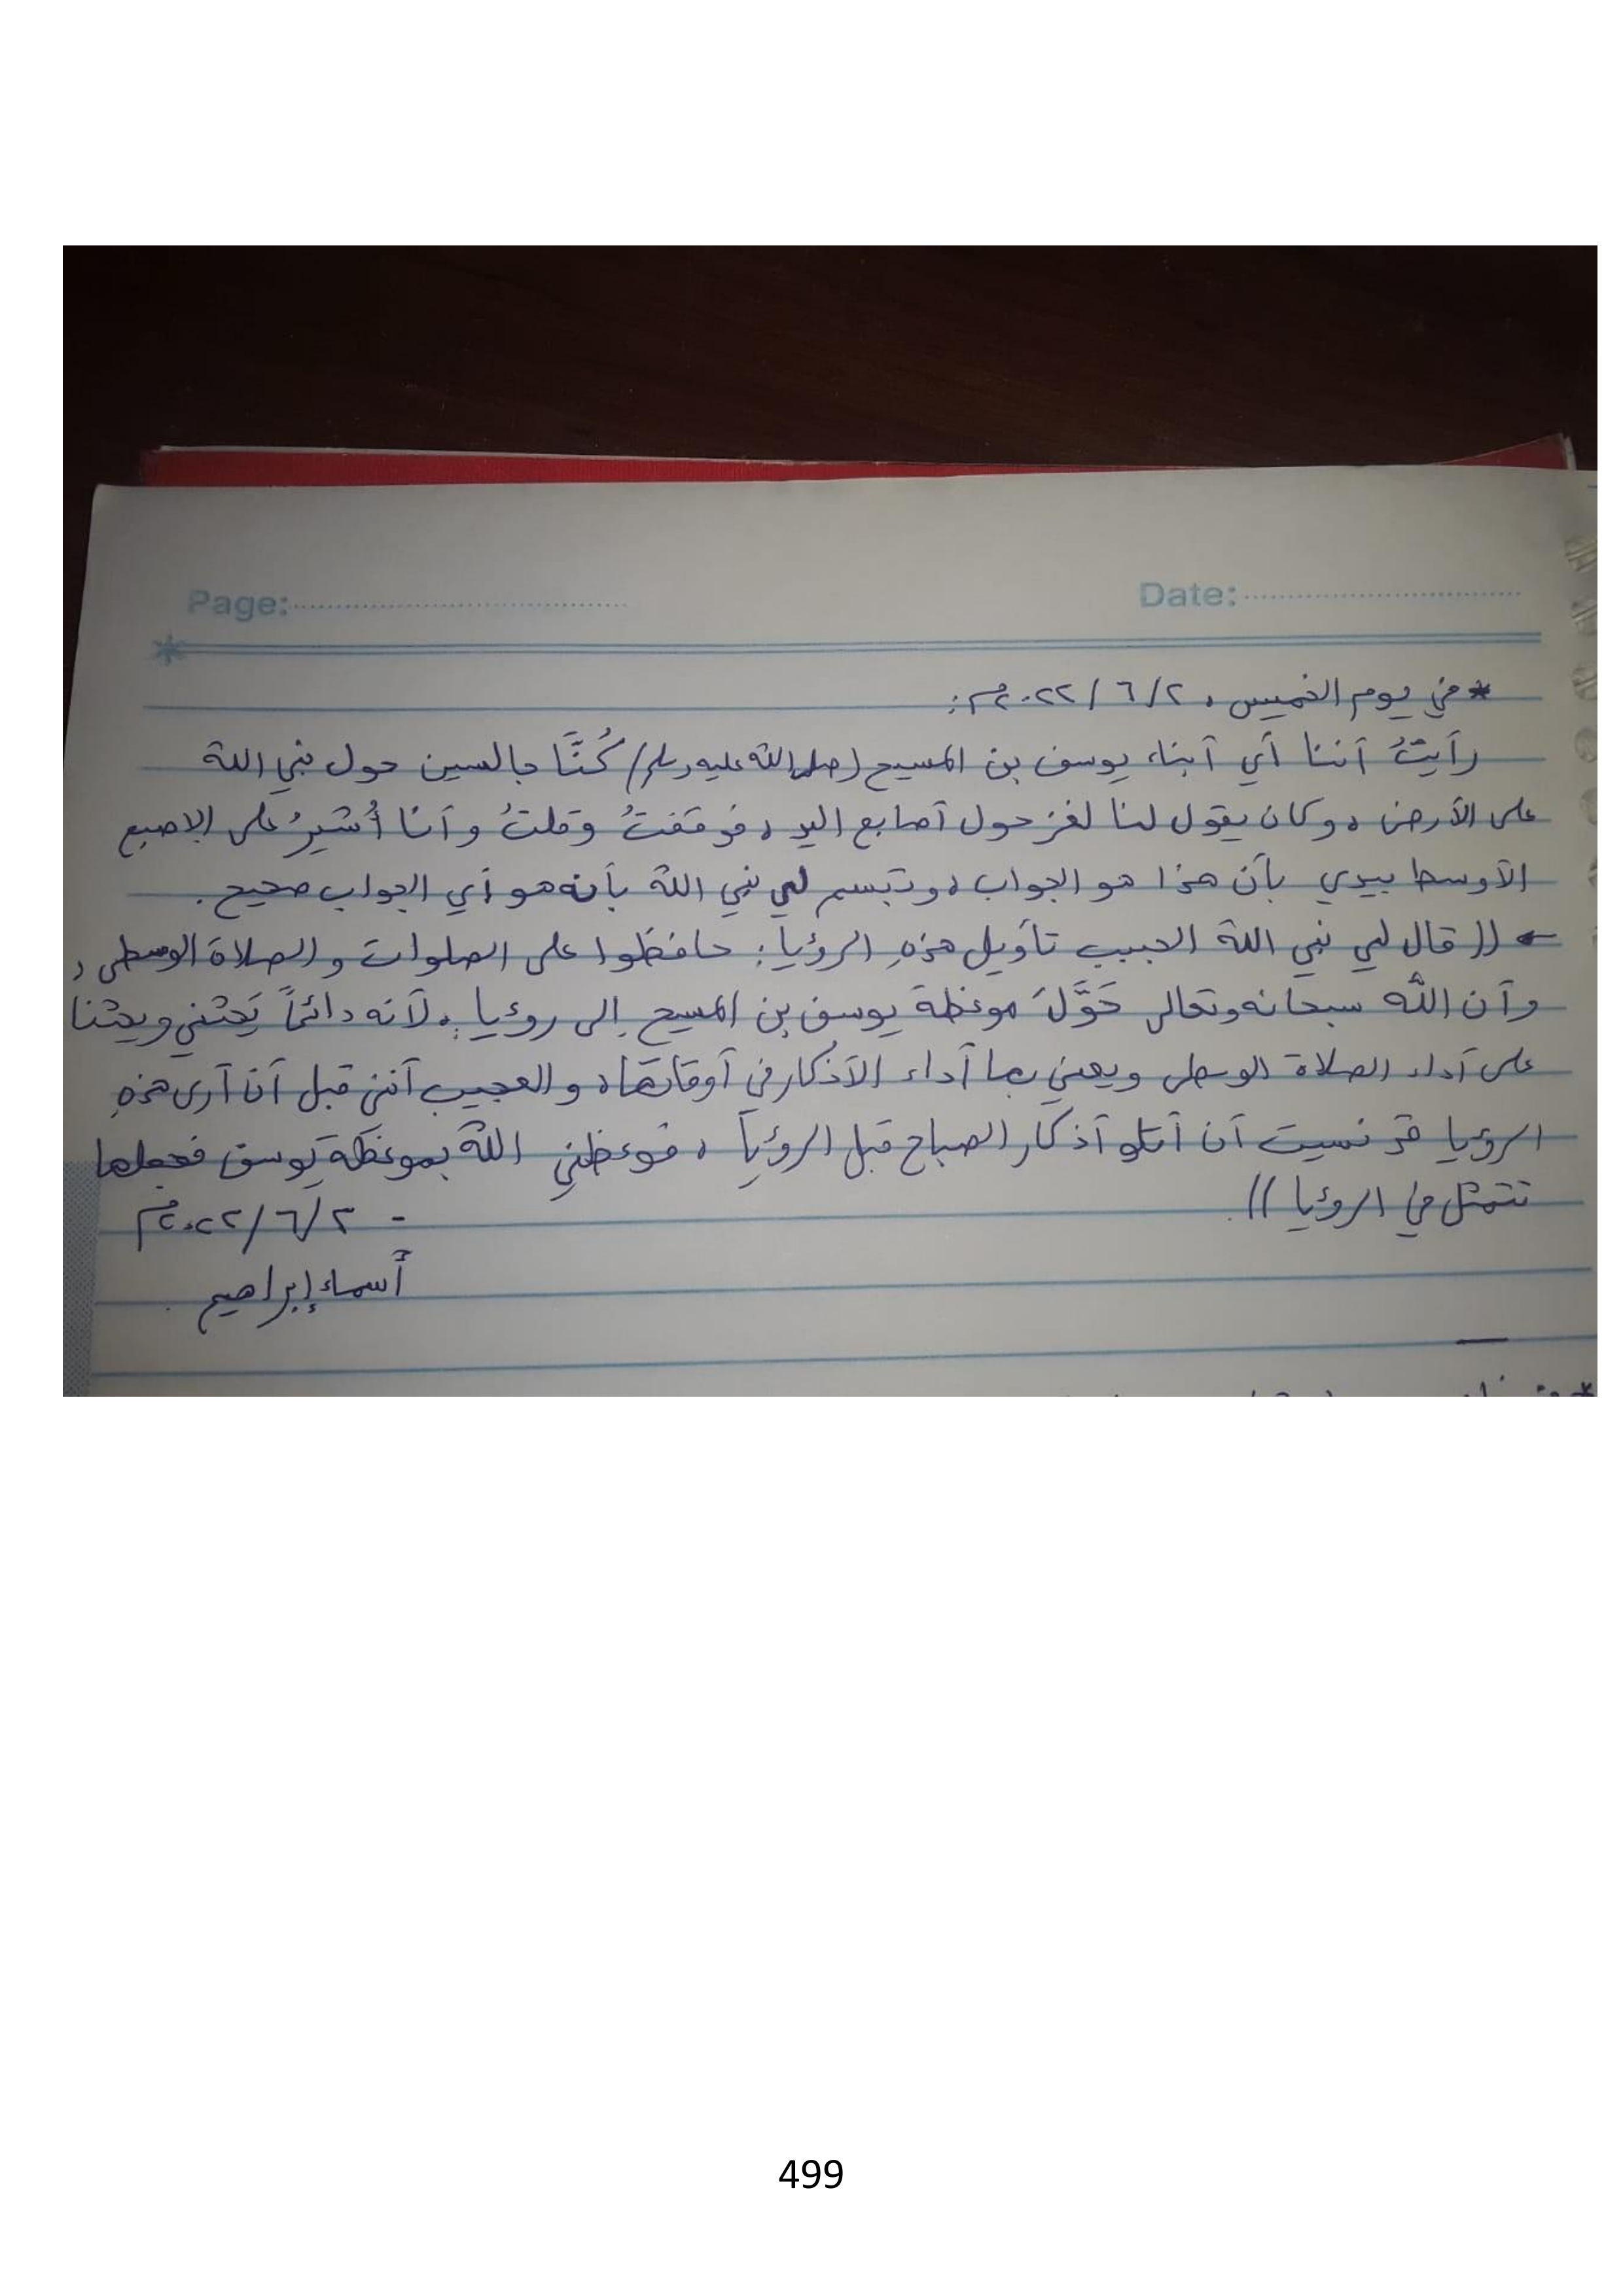 Page:
Date:
* في يوم الخميس، ٢/٦/٢٠٢٢م:
رأيتُ أننا أي أبناء يوسف بن المسيح (صلى الله عليه وسلم) كُنَّا جالسين حول نبي الله
على الأرض، وكان يقول لنا لغز حول أصابع اليد، فوقفتُ وقلتُ وأنا أُشيرُ على الإصبع
الأوسط بيدي بأن هذا هو الجواب، وتبسم لي نبي الله بأنه هو أي الجواب صحيح.
← (( قال لي نبي الله الحبيب تأويل هذهِ الرؤيا: حافظوا على الصلوات والصلاة الوسطى،
وأن الله سبحانه وتعالى حَوَّلَ موعظة يوسف بن المسيح إلى رؤيا؛ لأنه دائماً يَحثني ويحثنا
على أداء الصلاة الوسطى ويعني بها أداء الأذكار في أوقاتها، والعجيب أنني قبل أن أرى هذهِ
الرؤيا قد نسيت أن أتلو أذكار الصباح قبل الرؤيا، فوعظني الله بموعظة يوسف فجعلها
تتمثل في الرؤيا )).
- ٢/٦/٢٠٢٢م
أسماء إبراهيم.
499